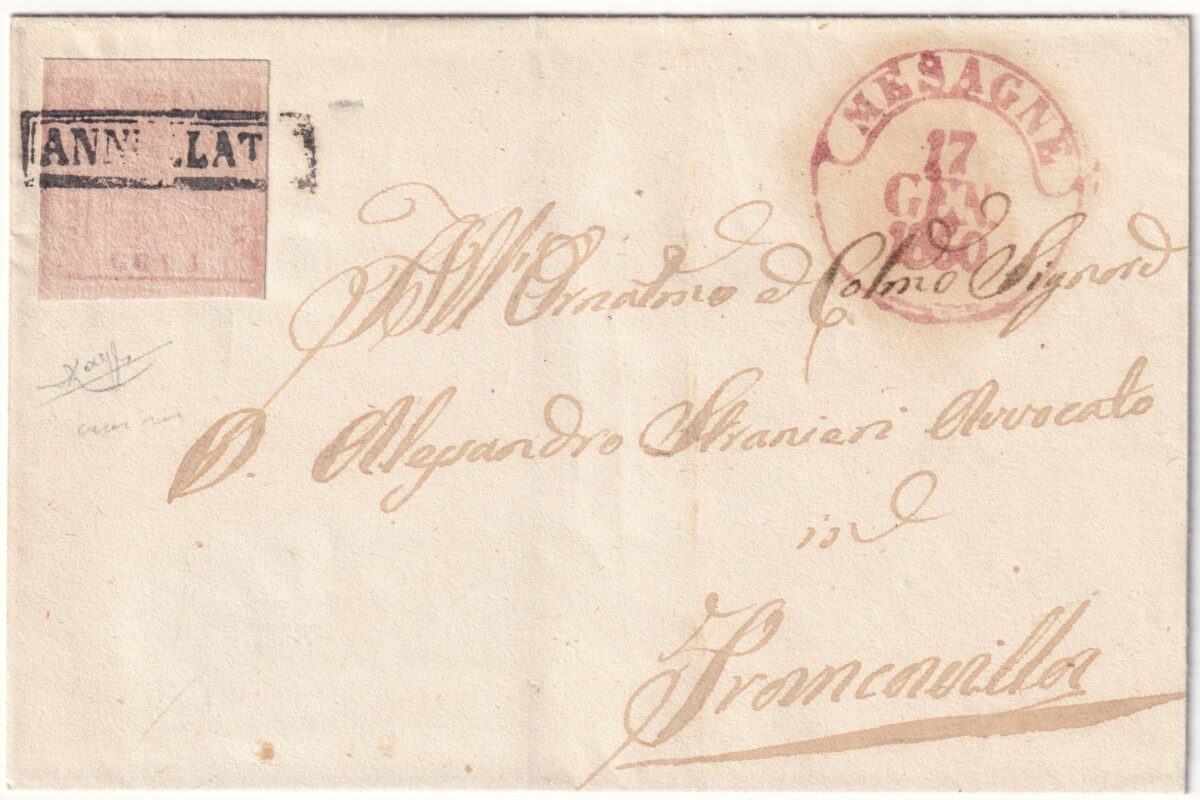 ANN LLAT
GR 1
MESAGNE
17
GEN
1860
All'Ornatmo e Colmo Signore
D. Alessandro Stranieri Avvocato
in
Francavilla